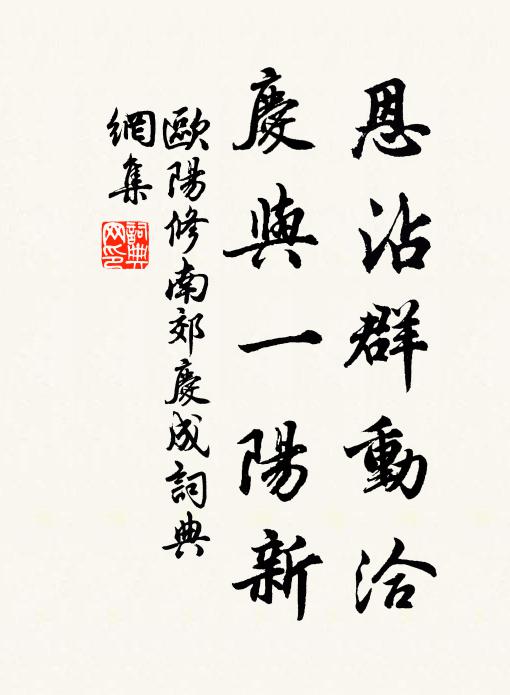 恩沾群動洽
慶與一陽新
歐陽修南郊慶成詞典
網集
詞典
网印